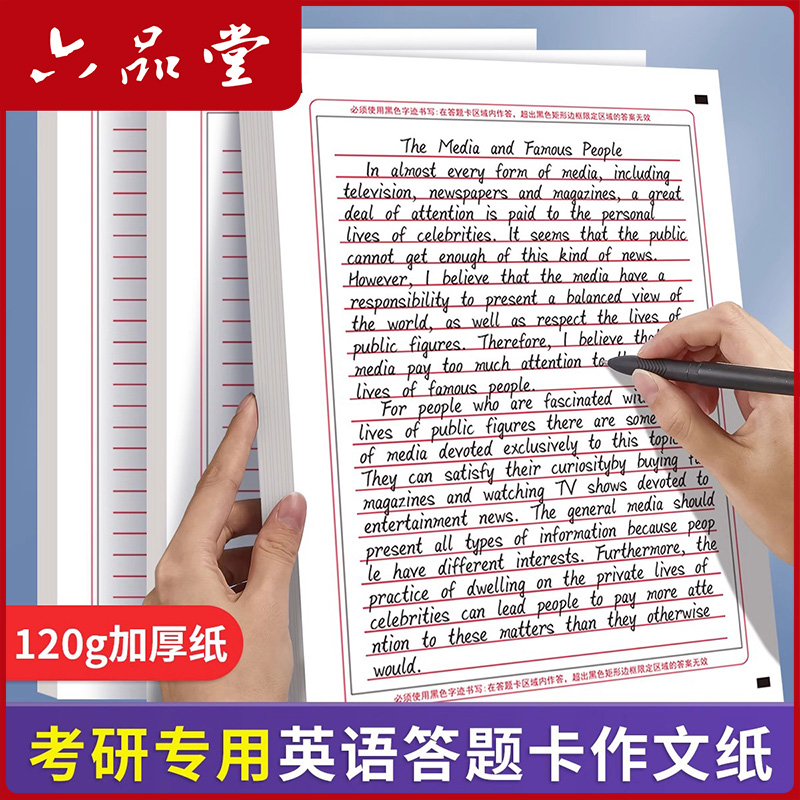 六品堂
必须使用黑色字迹书写:在答题卡区域内作答，超出黑色矩形边框限定区域的答案无效
The Media and Famous People
In almost every form of media, including
television, newspapers and magazines, a great
deal of attention is paid to the personal
lives of celebrities. It seems that the public
cannot get enough of this kind of news.
However, I believe that the media have a
responsibility to present a balanced view of
the world, as well as respect the lives of
public figures. Therefore, I believe that
media pay too much attention to
lives of famous people.
For people who are fascinated
lives of public figures there are some
of media devoted exclusively to this topic
They can satisfy their curiosityby buying
magazines and watching TV shows devoted to
entertainment news. The general media should
present all types of information because peop
le have different interests. Furthermore, the
practice of dwelling on the private lives of
celebrities can lead people to pay more atte
ntion to these matters than they otherwise
would.
必须使用黑色字迹书写:在答题卡区域内作答，超出黑色矩形边框限定区域的答案无效
120g加厚纸
考研专用英语答题卡作文纸